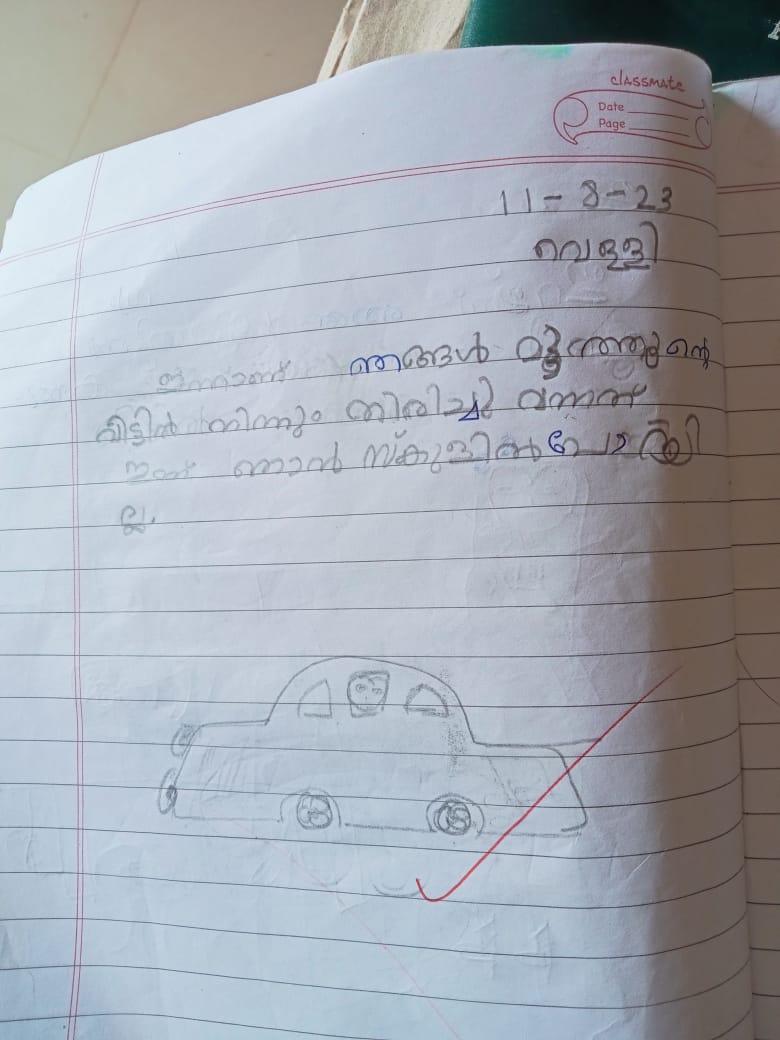 classmate
Date
Page
11-8-23
വെള്ളി
ഇന്നാണ് ഞങ്ങൾ മൂത്തുന്റെ
വീട്ടിൽ നിന്നും തിരിച്ചു വന്നത്
ഇന്ന് ഞാൻ സ്കൂളിൽ പോയി
ല്ല.